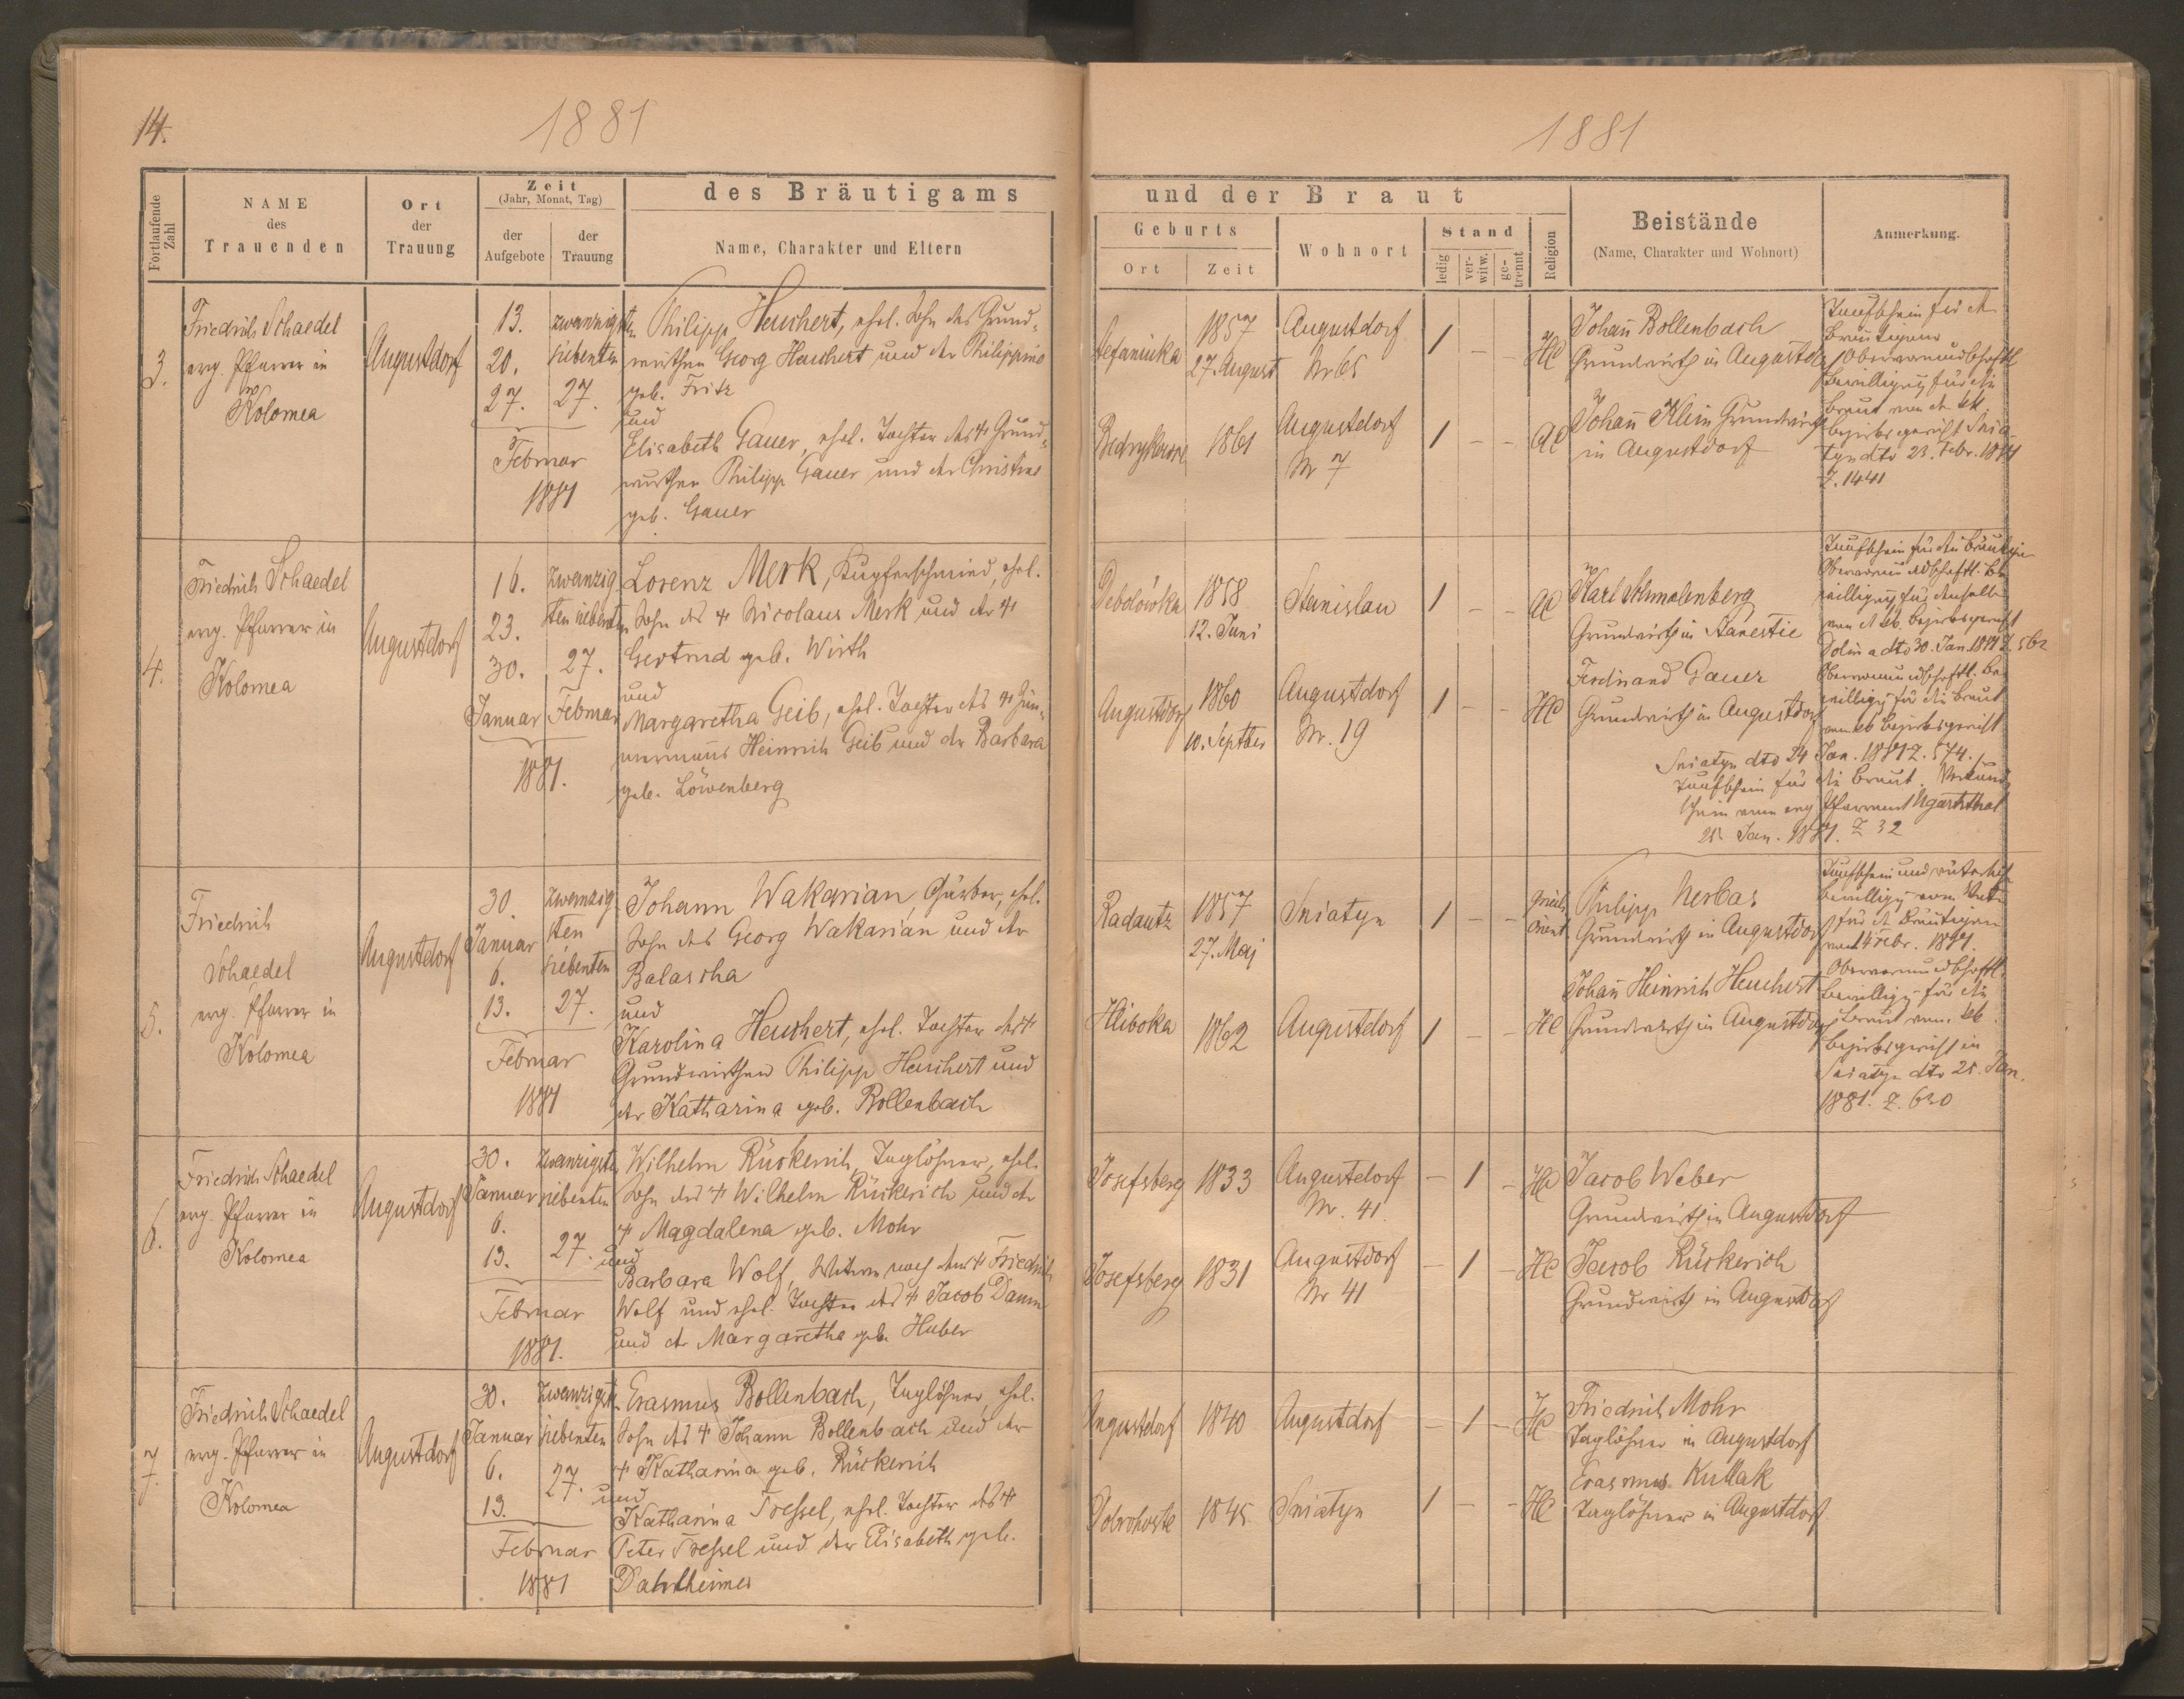 14.
1881
1881
Fortlaufende Zahl
NAME
des
Trauenden
Ort
der
Trauung
Zeit
(Jahr, Monat, Tag)
der
Aufgebote
der
Trauung
des Bräutigams
Name, Charakter und Eltern
und der Braut
Geburts
Ort
Zeit
Wohnort
Stand
ledig
ver-
witw.
ge-
trennt
Religion
Beistände
(Name, Charakter und Wohnort)
Anmerkung.
3.
Friedrich Schaedel
evg. Pfarrer in
Kolomea
Augustdorf
13.
20.
27.
Februar
1881
zwanzigsten
siebenten
27.
Philipp Heuchert, ehel. Sohn des Grund-
wirthen Georg Heuchert und der Philippine
geb. Fritz
und
Elisabeth Gauer, ehel. Tochter des † Grund-
wirthen Philipp Gauer und der Christine
geb. Gauer
Stefaniuka
1857
27. August
Augustdorf
Nr 65
1
HC
1861
Augustdorf
Nr 7
1
AC
Johañ Bollenbach
Grundwirth in Augustdf
Johañ Klein Grundwirth
in Augustdorf
Taufschein für d
Bräutigam
Obervormundschaftl
Bewilligung für die
Braut von d kk
Bezirksgericht Snia-
tyn dto 23. Febr. 1881
Z. 1441
4.
Friedrich Schaedel
evg. Pfarrer in
Kolomea
Augustdorf
16.
23.
30.
Januar
1881.
zwanzig
sten siebenten
27.
Februar
Lorenz Merk, Kupferschmied, ehel.
Sohn des † Nicolaus Merk und der †
Gertrud geb. Wirth
und
Margaretha Geib, ehel. Tochter des † Zim-
mermanns Heinrich Geib und der Barbara
geb. Löwenberg
Debolówka
1858
12. Juni
Stanislau
1
AC
Augustdorf
1860
10. Septber
Augustdorf
Nr. 19
1
HC
Karl Schmalenberg
Grundwirth in Stanestie
Ferdinand Gauer
Grundwirth in Augustdorf
Taufschein für den Bräutigam
Obervormundschaftl. Be
willigung für denselben
von d kk. Bezirksgericht
Dolina dto 30. Jan. 1881 Z. 562
Obervormundschaftl. Be
willigg für die Braut
vom kk Bezirksgericht
Sniatyn dto 24 Jan. 1881 Z. 574.
Taufschein für die Braut. Verkünd
schein vom evg Pfarramt Ugartsthal
25. Jan. 1881. Z 32
5.
Friedrich
Schaedel
evg. Pfarrer in
Kolomea
Augustdorf
30.
Januar
6.
13.
Februar
1881
zwanzig
sten
siebenten
27.
Johann Wakarian, Gärber, ehel.
Sohn des Georg Wakarian und der
Balascha
und
Karolina Heuchert, ehel. Tochter des †
Grundwirthen Philipp Heuchert und
der Katharina geb. Bollenbach
Radautz
1857
27. Mai
Sniatyn
1
griech
orient
Hliboka
1862
Augustdorf
1
HC
Philipp Nerbas
Grundwirth in Augustdorf
Johañ Heinrich Heuchert
Grundwirth in Augustdorf
Taufschein und väterliche
Bewilligg vom Vater
für d Bräutigam
vom 14 Febr. 1881.
Obervormundschaftl.
Bewilligg für die
Braut vom kk
Bezirksgericht in
Sniatyn dto 25. Jan.
1881. Z. 620
6.
Friedrich Schaedel
evg. Pfarrer in
Kolomea
Augustdorf
30.
Januar
6.
13.
Februar
1881.
zwanzigsten
siebenten
27.
Wilhelm Rückerich, Taglöhner, ehel.
Sohn des † Wilhelm Rückerich und der
† Magdalena geb. Mohr
und
Barbara Wolf, Witwe nach dem † Friedrich
Wolf und ehel. Tochter des † Jacob Damm
und der Margaretha geb. Huber
Josefsberg
1833
Augustdorf
Nr. 41
1
HC
Josefsberg
1831
Augustdorf
Nr 41
1
HC
Jacob Weber
Grundwirth in Augustdorf
Jacob Rückerich
Grundwirth in Augustdorf
7.
Friedrich Schaedel
evg. Pfarrer in
Kolomea
Augustdorf
30.
Januar
6.
13.
Februar
1881
zwanzigsten
siebenten
27.
Erasmus Bollenbach, Taglöhner, ehel.
Sohn des † Johann Bollenbach und der
† Katharina geb. Rückerich
und
Katharina Dressel, ehel. Tochter des †
Peter Dressel und der Elisabeth geb.
Dahlheimer
Augustdorf
1840
Augustdorf
1
HC
1845
Sniatyn
1
HC
Friedrich Mohr
Taglöhner in Augustdorf
Erasmus Kullak
Taglöhner in Augustdorf